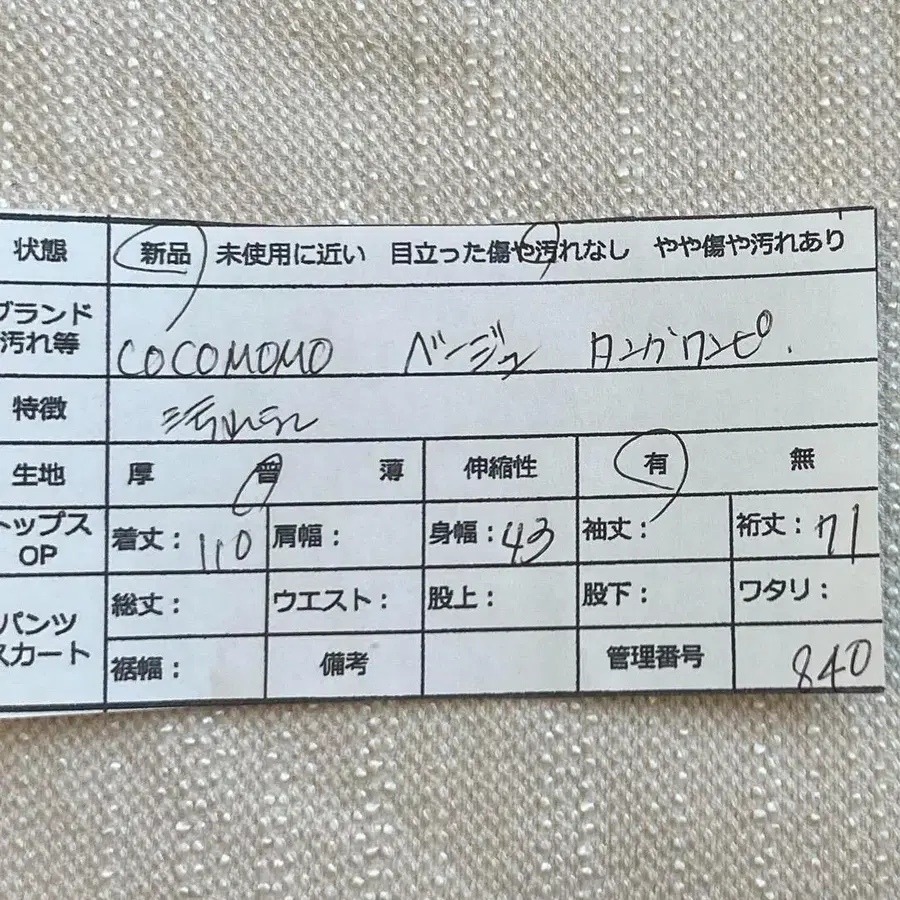 状態 新品 未使用に近い 目立った傷や汚れなし やや傷や汚れあり
ブランド
汚れ等 COCOMOMO ベージュ タングワンピ.
特徴
生地 厚 普 薄 伸縮性 有 無
トップス
OP 着丈: 110 肩幅: 身幅: 43 袖丈: 裄丈: 71
パンツ
スカート 総丈: ウエスト: 股上: 股下: ワタリ:
裾幅: 備考 管理番号 840